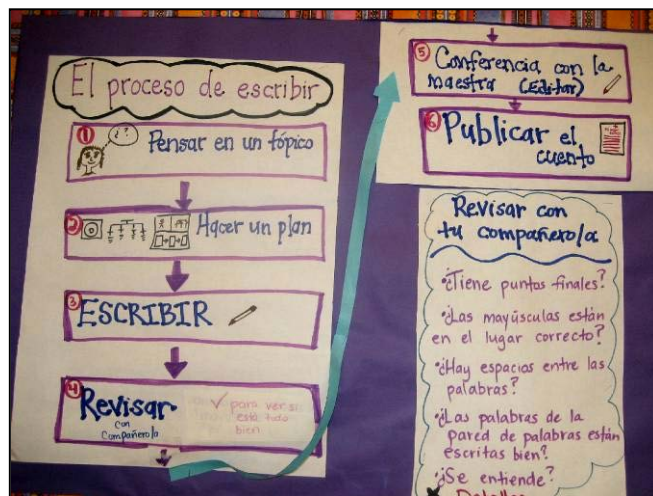 El proceso de escribir
1
Pensar en un tópico
2
Hacer un plan
3
ESCRIBIR
4
Revisar
con
Compañero/a
✓ para ver si
está todo
bien
5
Conferencia con la
maestra (Editar)
6
Publicar el
cuento
Revisar con
tu compañero/a
•¿Tiene puntos finales?
•¿Las mayúsculas están
en el lugar correcto?
•¿Hay espacios entre las
palabras?
•¿Las palabras de la
pared de palabras están
escritas bien?
•¿Se entiende?
Detalles